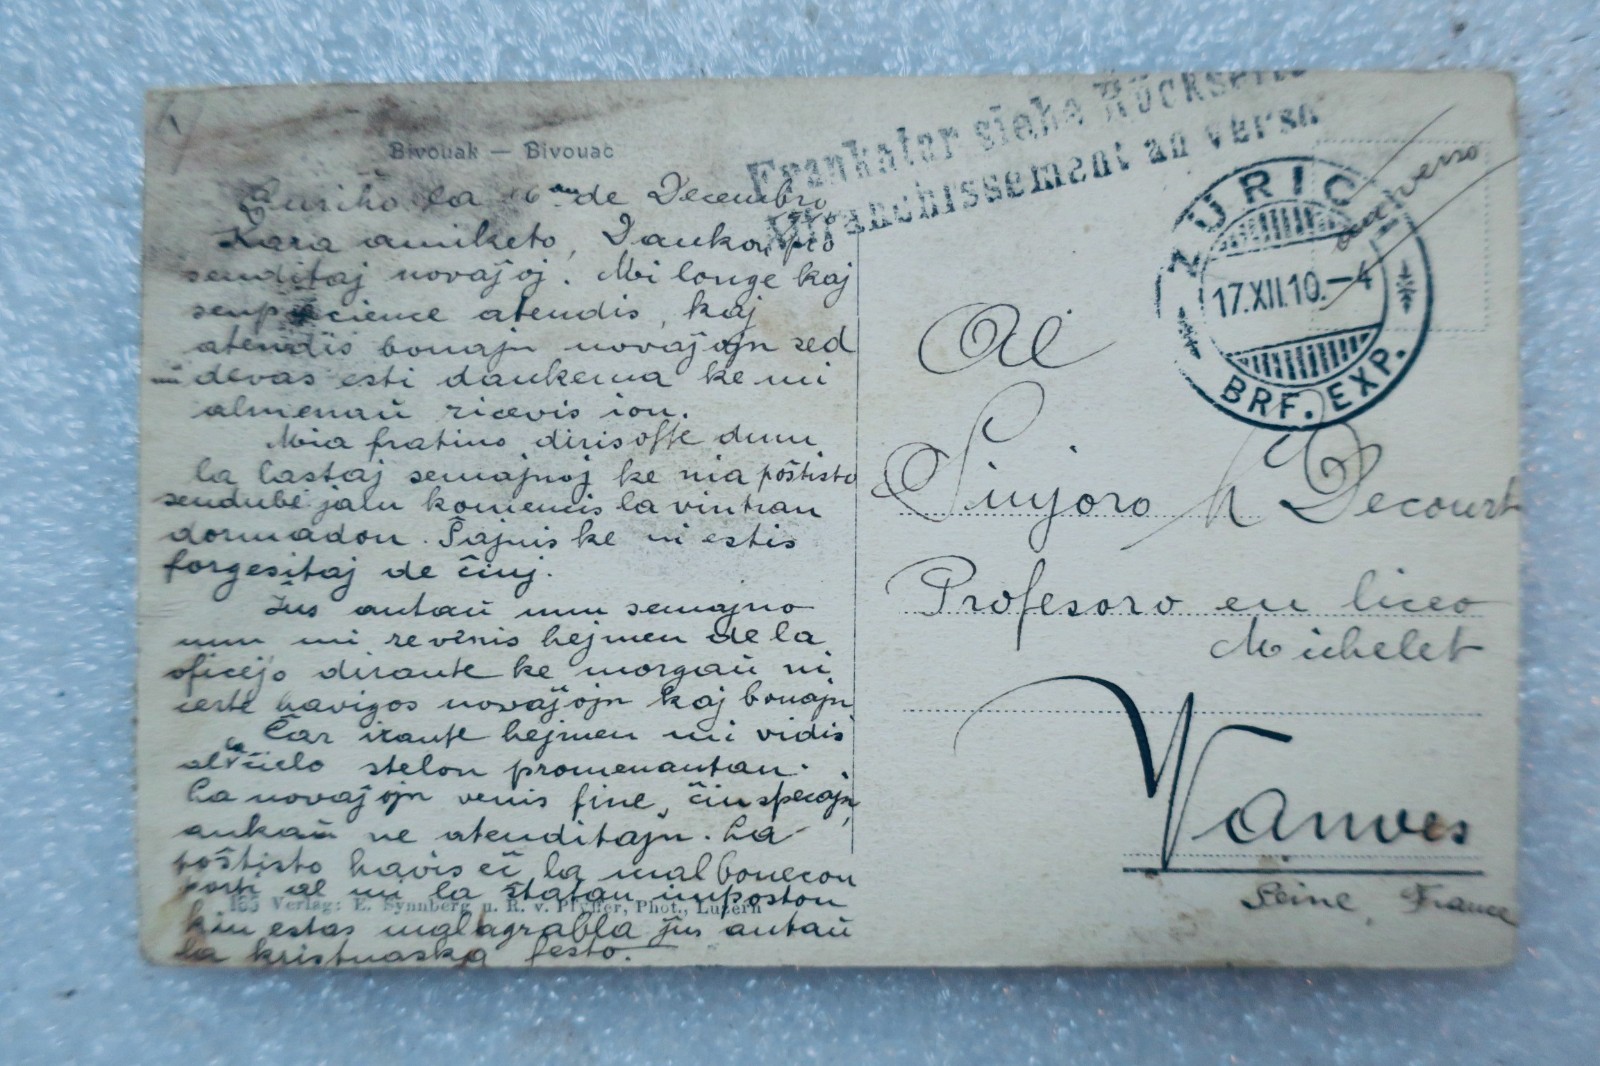 Bivouak — Bivouac
Frankatur siehe Rückseite
Affranchissement au verso
au verso
ZÜRICH
17.XII.10.–4
BRF. EXP.
la 16an de Decembro
Kara amiketo, Dankon pro
senditaj novaĵoj. Mi longe kaj
senpacience atendis, kaj
atendis bonajn novaĵojn sed
mi devas esti dankema ke mi
almenaŭ ricevis ion.
Mia fratino diris ofte dum
la lastaj semajnoj ke nia poŝtisto
sendube jam komencis la vintran
dormadon. Ŝajnis ke ni estis
forgesitaj de ĉiuj.
Ĵus antaŭ unu semajno
mi revenis hejmen de la
oficejo dirante ke morgaŭ ni
certe havigos novaĵojn kaj bonajn
Ĉar irante hejmen mi vidis
al la ĉielo stelon promenantan.
La novaĵojn venis fine, ĉiuspecajn,
ankaŭ ne atenditajn. La
poŝtisto havis eĉ la malbonecon
porti al mi la ŝtatan imposton
kiu estas malagrabla ĵus antaŭ
la kristnaska festo.
185 Verlag: E. Synnberg u. R. v. Pfyffer, Phot., Luzern
Al
Sinjoro M Decourt
Profesoro en liceo
Michelet
Vanves
Seine, France